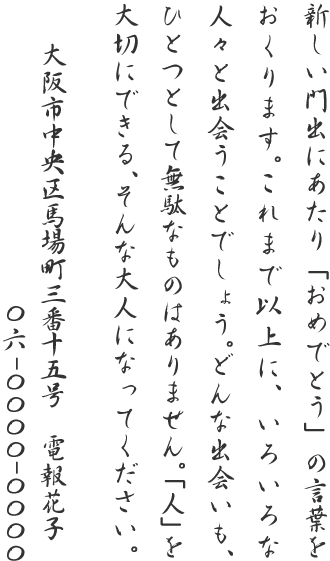 新しい門出にあたり「おめでとう」の言葉を
おくります。これまで以上に、いろいろな
人々と出会うことでしょう。どんな出会いも、
ひとつとして無駄なものはありません。「人」を
大切にできる、そんな大人になってください。
大阪市中央区馬場町三番十五号　電報花子
〇六－〇〇〇〇－〇〇〇〇